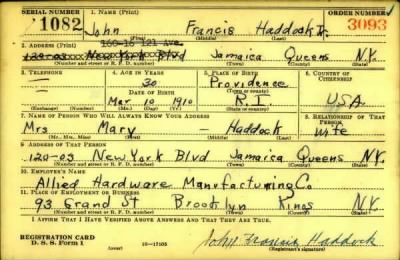 SERIAL NUMBER 1. NAME (Print) ORDER NUMBER
1082 John Francis Haddock Jr. 3093
(First) (Middle) (Last)
160-16 121 Ave.
2. ADDRESS (Print)
120-03 New York Blvd Jamaica Queens N.Y.
(Number and street or R. F. D. number) (Town) (County) (State)
3. TELEPHONE 4. AGE IN YEARS 5. PLACE OF BIRTH 6. COUNTRY OF CITIZENSHIP
30 Providence
DATE OF BIRTH (Town or county)
Mar 10 1910 R.I. USA
(Exchange) (Number) (Mo.) (Day) (Yr.) (State or country)
7. NAME OF PERSON WHO WILL ALWAYS KNOW YOUR ADDRESS 8. RELATIONSHIP OF THAT PERSON
Mrs Mary - Haddock Wife
(Mr., Mrs., Miss) (First) (Middle) (Last)
9. ADDRESS OF THAT PERSON
120-03 New York Blvd Jamaica Queens N.Y.
(Number and street or R. F. D. number) (Town) (County) (State)
10. EMPLOYER'S NAME
Allied Hardware Manufacturing Co
11. PLACE OF EMPLOYMENT OR BUSINESS
93 Grand St Brooklyn Kings N.Y.
(Number and street or R. F. D. number) (Town) (County) (State)
I AFFIRM THAT I HAVE VERIFIED ABOVE ANSWERS AND THAT THEY ARE TRUE.
REGISTRATION CARD
D. S. S. Form 1 16-17105 John Francis Haddock
(Registrant's signature)